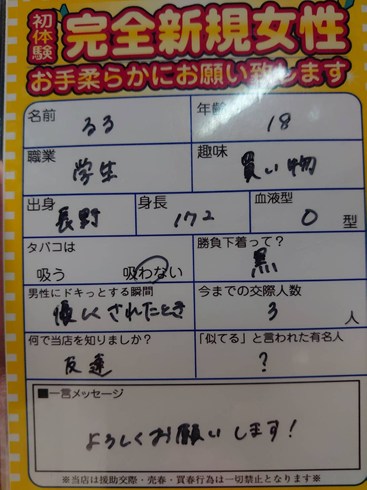 初体験
完全新規女性
お手柔らかにお願い致します
名前 るる 年齢 18
職業 学生 趣味 買い物
出身 長野 身長 172 血液型 O 型
タバコは 吸う 吸わない 勝負下着って? 黒
男性にドキっとする瞬間 優しくされたとき 今までの交際人数 3 人
何で当店を知りましたか? 友達 「似てる」と言われた有名人 ?
■一言メッセージ
よろしくお願いします!
※当店は援助交際・売春・買春行為は一切禁止となります※